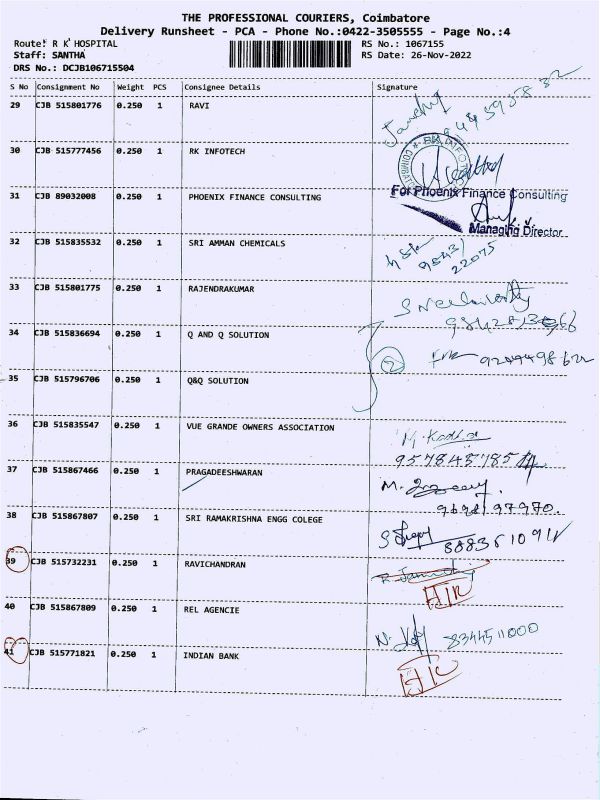 THE PROFESSIONAL COURIERS, Coimbatore
Delivery Runsheet - PCA - Phone No.:0422-3505555 - Page No.:4
Route: R K HOSPITAL RS No.: 1067155
Staff: SANTHA RS Date: 26-Nov-2022
DRS No.: DCJB106715504
S No Consignment No Weight PCS Consignee Details Signature
29 CJB 515801776 0.250 1 RAVI
30 CJB 515777456 0.250 1 RK INFOTECH
31 CJB 89032008 0.250 1 PHOENIX FINANCE CONSULTING For Phoenix Finance Consulting
Managing Director
32 CJB 515835532 0.250 1 SRI AMMAN CHEMICALS
98431
22075
33 CJB 515801775 0.250 1 RAJENDRAKUMAR
34 CJB 515836694 0.250 1 Q AND Q SOLUTION
2
35 CJB 515796706 0.250 1 Q&Q SOLUTION
36 CJB 515835547 0.250 1 VUE GRANDE OWNERS ASSOCIATION
37 CJB 515867466 0.250 1 PRAGADEESHWARAN
38 CJB 515867807 0.250 1 SRI RAMAKRISHNA ENGG COLEGE
39 CJB 515732231 0.250 1 RAVICHANDRAN
40 CJB 515867809 0.250 1 REL AGENCIE
8344511000
41 CJB 515771821 0.250 1 INDIAN BANK